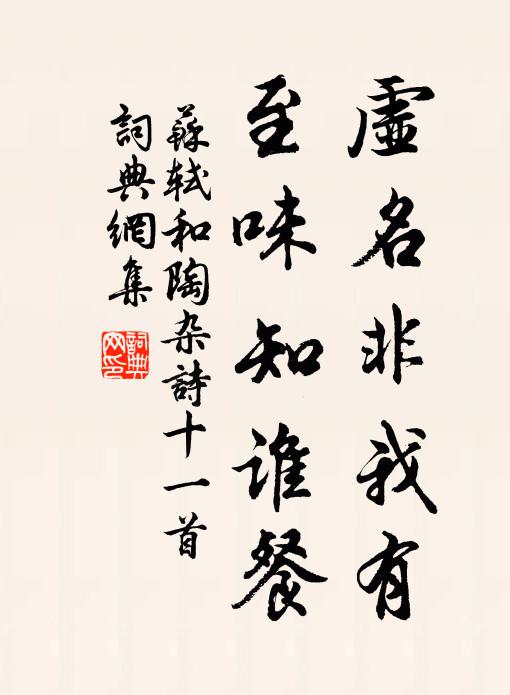 虛名非我有
至味知谁餐
蘇軾和陶杂詩十一首
詞典網集
詞典網印